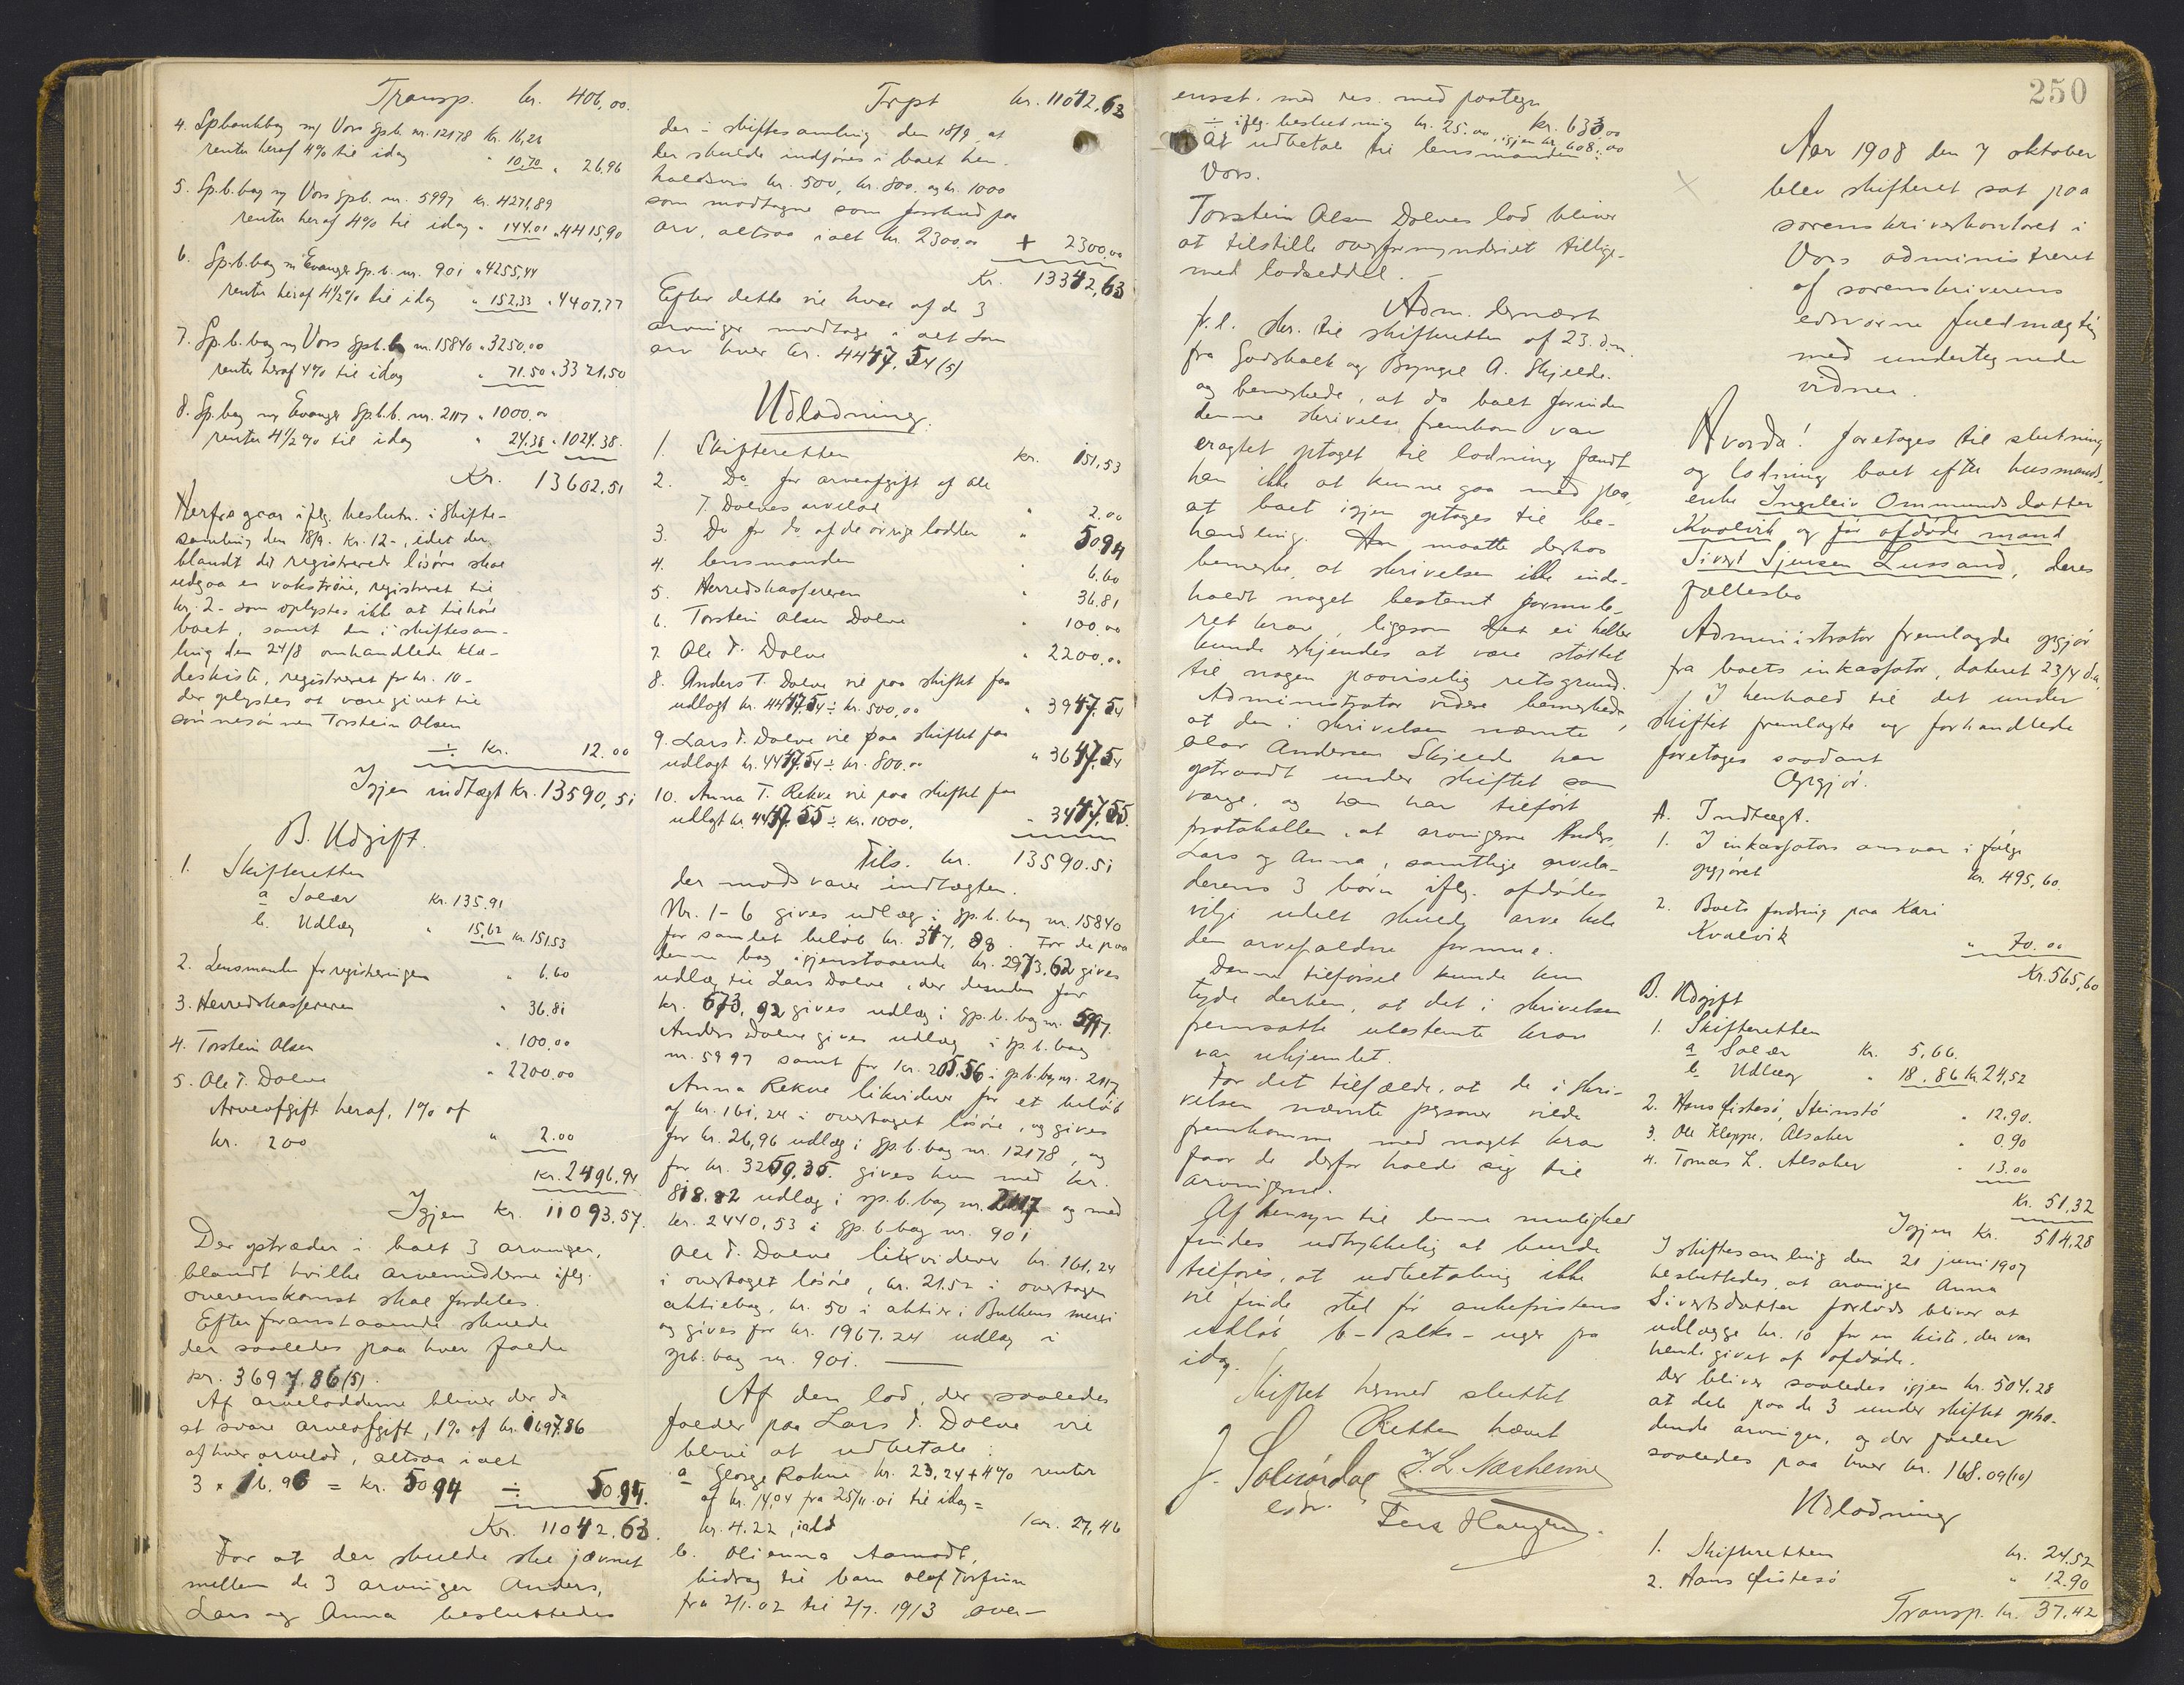 Transp. kr. 406,00.
4. Spbankbog m/ Vors Spb. nr. 12178 kr. 16,26
renter heraf 4% til idag " 10,70 " 26.96
5. Sp.b.bog m/ Vors Spb. nr. 5997 kr. 4271,89
renter heraf 4% til idag " 144.01 " 4415,90
6. Sp.b.bog m/ Evanger Sp.b. nr. 901 " 4255,44
renter heraf 4½% til idag " 152,33 " 4407,77
7. Sp.b.bog m/ Vors Spb. nr. 15840 " 3250,00
renter heraf 4% til idag " 71.50 " 3321,50
8. Sp.bog m/ Evanger Sp.b. nr. 2117 " 1000.00
renter 4½% til idag " 24.38 " 1024.38.
Kr. 13602,51
Herfra gaar ifølg. beslutn. i skifte-
samling den 18/9. kr. 12-, idet der
blandt det registrerede løsøre skal
udgaa en vokstrøie, registreret til
kr. 2- som oplystes ikke at tilhøre
boet, samt den i skiftesam-
ling den 24/8 omhandlede klæ-
deskiste, registreret for kr. 10-
der oplystes at være givet til
sønnesønnen Torstein Olsen
÷ kr. 12.00
Igjen indtægt kr. 13590,51
B. Udgift.
1. Skifteretten
a Salær kr. 135.91
b. Udlæg " 15,62 kr. 151.53
2. Lensmanden for registreringen " 6.60
3. Herredskassereren " 36.81
4. Torstein Olsen " 100.00
5. Ole T. Dolve " 2200.00
Arveafgift heraf, 1% af
kr. 200 " 2.00
kr. 2496,94
Igjen kr. 11093.57.
Der optræder i boet 3 arvinger,
blandt hvilke arvemidlerne ifølg.
overenskomst skal fordeles.
Efter foranstaaende skulde
der saaledes paa hver falde
kr. 3697.86 (5).
Af arvelodderne bliver der da
at svare arveafgift, 1% af kr. 1697.86
af hver arvelod, altsaa ialt
3 x 16.98 = kr. 50 94 ÷ 50.94.
Kr. 11042.63.
For at der skulde ske jævnet
mellem de 3 arvinger Anders,
Lars og Anna besluttedes
Trpt kr. 11042,63
der i skiftesamling den 18/9 at
der skulde indføres i boet hen-
holdsvis kr. 500, kr. 800. og kr. 1000
som modtagne som forskud paa
arv, altsaa ialt kr. 2300.00 + 2300,00
Kr. 13342,63
Efter dette vil hver af de 3
arvinger modtage i alt som
arv hver kr. 4447.54 (5)
Udlodning.
1. Skifteretten kr. 151,53
2. Do for arveafgift af Ole
T. Dolves arvelod " 2.00
3. Do for do af de øvrige lodder " 50 94
4. Lensmanden " 6.60
5. Herredskassereren " 36.81
6. Torstein Olsen Dolve " 100.00
7. Ole T. Dolve " 2200.00
8. Anders T. Dolve vil paa skiftet faa
udlagt kr. 4447.54 ÷ kr. 500,00 " 3947.54
9. Lars T. Dolve vil paa skiftet faa
udlagt kr. 4447.54 ÷ kr. 800.00 " 3647.54
10. Anna T. Rekve vil paa skiftet faa
udlagt kr. 4447.55 ÷ kr. 1000. " 3447.55.
Tils. kr. 13590.51
der modsvarer indtægten.
Nr. 1-6 gives udlæg i sp.b.bog nr. 15840
for samlet beløb kr. 347.88. For de paa
denne bog igjenstaaende kr. 2973.62 gives
udlæg til Lars Dolve, der desuden for
kr. 673,92 gives udlæg i sp.b.bog nr. 5997.
Anders Dolve gives udlæg i sp.b.bog
nr. 5997 samt for kr. 205.56 i sp.b.bog nr. 2117
Anna Rekve likviderer for et beløb
af kr. 161.24 i overtaget løsøre, og gives
for kr. 26,96 udlæg i sp.b.bog nr. 12178, og
for kr. 3259.35. gives hun med kr.
818.82 udlæg i sp.b.bog nr. 2117 og med
kr. 2440,53 i sp.b.bog nr. 901
Ole T. Dolve likviderer kr. 161.24
i overtaget løsøre, kr. 21.52 i overtagen
aktiebog, kr. 50 i aktier i Bulkens meieri
og gives for kr. 1967.24 udlæg i
spb.bog nr. 901.
Af den lod, der saaledes
falder paa Lars T. Dolve vil
blive at udbetale:
a George Rokne kr. 23.24 + 4% renter
af kr. 14,04 fra 25/11.01 til idag =
kr. 4.22, ialt kr. 27,46
b. Olianna Aamodt,
bidrag til barn Olaf Torfin
fra 2/1.02 til 2/7. 1913 over-
ensst. med res. med paategn
kr. 633.00
÷ ifølg. beslutning kr. 25.00, igjen kr. 608.00
at udbetale til lensmanden
Vors.
Torstein Olsen Dolves lod bliver
at tilstille overformynderiet tillige-
med lodseddel.
Adm. dernæst
f.l. skr. til skifteretten af 23. d.m.
fra Godskalk og Brynjel A. Skjelde.
og bemerkede, at da boet forinden
denne skrivelse fremkom var
eragtet optaget til lodning fandt
han ikke at kunne gaa med paa,
at boet igjen optages til be-
handling. Han maatte derhos
bemerke, at skrivelsen ikke inde-
holdt noget bestemt formule-
ret krav, ligesom det ei heller
kunde skjønnes at være støttet
til nogen paaviselig retsgrund.
Administrator videre bemerkede,
at den i skrivelsen nævnte
Olav Andersen Skjelde har
optraadt under skiftet som
værge, og han har tilført
protokollen, at arvingerne Anders,
Lars og Anna, samtlige arvela-
derens 3 børn ifølg. afdødes
vilje udelt skulde arve hele
den arvefaldne formue.
Denne tilførsel kunde kun
tyde derhen, at det i skrivelsen
fremsatte ubestemte krav
var uhjemlet.
For det tilfælde, at de i skri-
velsen nævnte personer vilde
fremkomme med noget krav
faar de derfor holde sig til
arvingerne.
Af hensyn til denne mulighed
findes udtrykkelig at burde
tilføres, at udbetaling ikke
vil finde sted før ankefristens
udløb 6- seks- uger fra
idag.
Skiftet hermed sluttet
Retten hævet
250
Aar 1908 den 7 oktober
blev skifteret sat paa
sorenskriverkontoret i
Vors administreret
af sorenskriverens
edsvorne fuldmægtig
med undertegnede
vidner.
Hvorda! foretoges til slutning
og lodning boet efter husmands-
enke Ingeleiv Ommundsdatter
Kvalvik og før afdøde mand
Sivert Sjursen Lussand, deres
fællesbo
Administrator fremlagde opgjør
fra boets inkassator, dateret 23/4 d.a,
I henhold til det under
skiftet fremlagte og forhandlede
foretoges saadant
Opgjør.
A. Indtægt.
1. I inkassators ansvar i følge
opgjøret kr. 495,60.
2. Boets fordring paa Kari
Kvalvik " 70.00
Kr. 565,60
B. Udgift
1. Skifteretten
a Salær kr. 5,66.
b. Udlæg " 18.86 kr. 24,52
2. Hans Fistesø, Steinstø " 12.90.
3. Ole Kleppe, Alsaker " 0,90
4. Tomas L. Alsaker " 13.00
kr. 51,32
Igjen kr. 514,28
I skiftesamling den 21 juni 1907
besluttedes, at arvingen Anna
Sivertsdatter forlods bliver at
udlægge kr. 10 for en kiste, der var
hende givet af afdøde.
Der bliver saaledes igjen kr. 504.28
at dele paa de 3 under skiftet optræ-
dende arvinger, og der falder
saaledes paa hver kr. 168.09 (10)
Udlodning
1. Skifteretten kr. 24.52
2. Hans Fistesø " 12.90
Transp. kr. 37.42